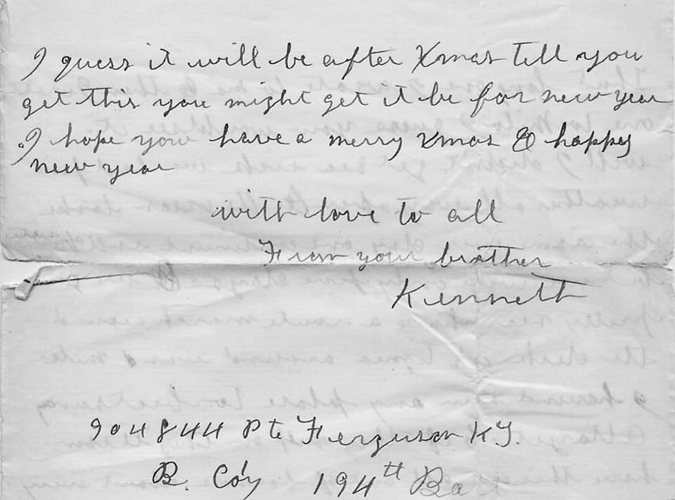 I guess it will be after Xmas tell you
get this you might get it be for new year
I hope you have a merry Xmas & happy
new year
with love to all
From your brother
Kenneth
904844 Pte Ferguson K.J.
B. Coy 194th Ba